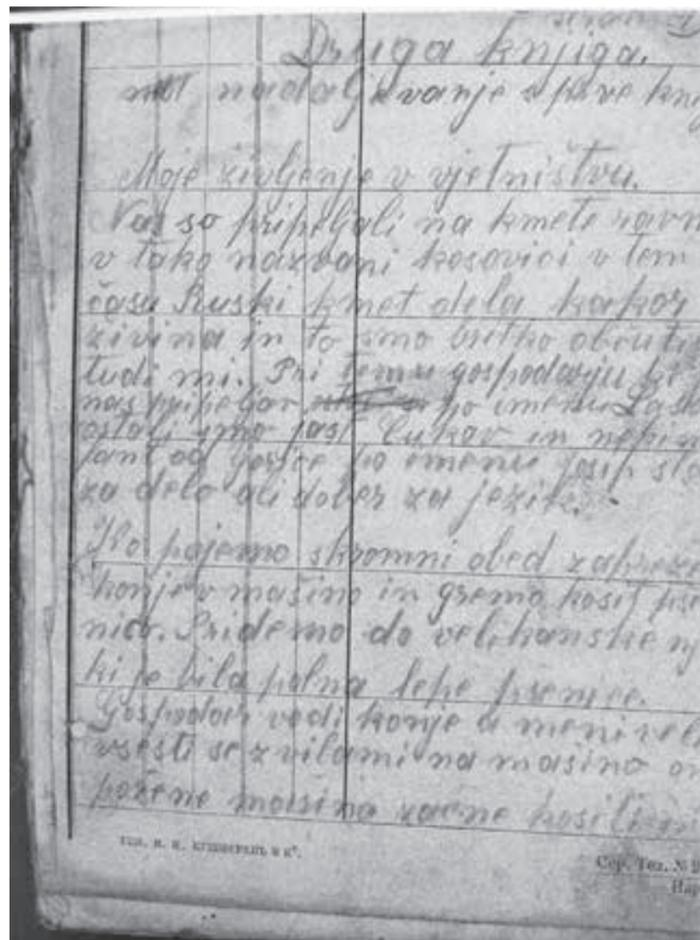 Druga knjiga.
nadaljevanje s prve knj
Moje življenje v vjetništvu.
Nas so pripeljali na kmete ravn
v tako nazvani kosovici v tem
času Ruski kmet dela kakor
živina in to smo britko občuti
tudi mi. Pri temu gospodarju ki
nas pripeljav po imenu
ostali smo jast Cukov in
jani od gorice po imenu josip
za delo ali dober za jezik.
Ko pojemo skromni obed zapreže
konje v mašino in gremo kosit pš
nico. Pridemo do velikanske nj
ki je bila polna lepe pšenice.
Gospodar vodi konje a meni vel
vsesti se z vilami na mašino on
požene mašina začne kositi in
ТИП. И. Н. КУШНЕРЕВЪ И Кº.
Сер. Тел. №
Нар